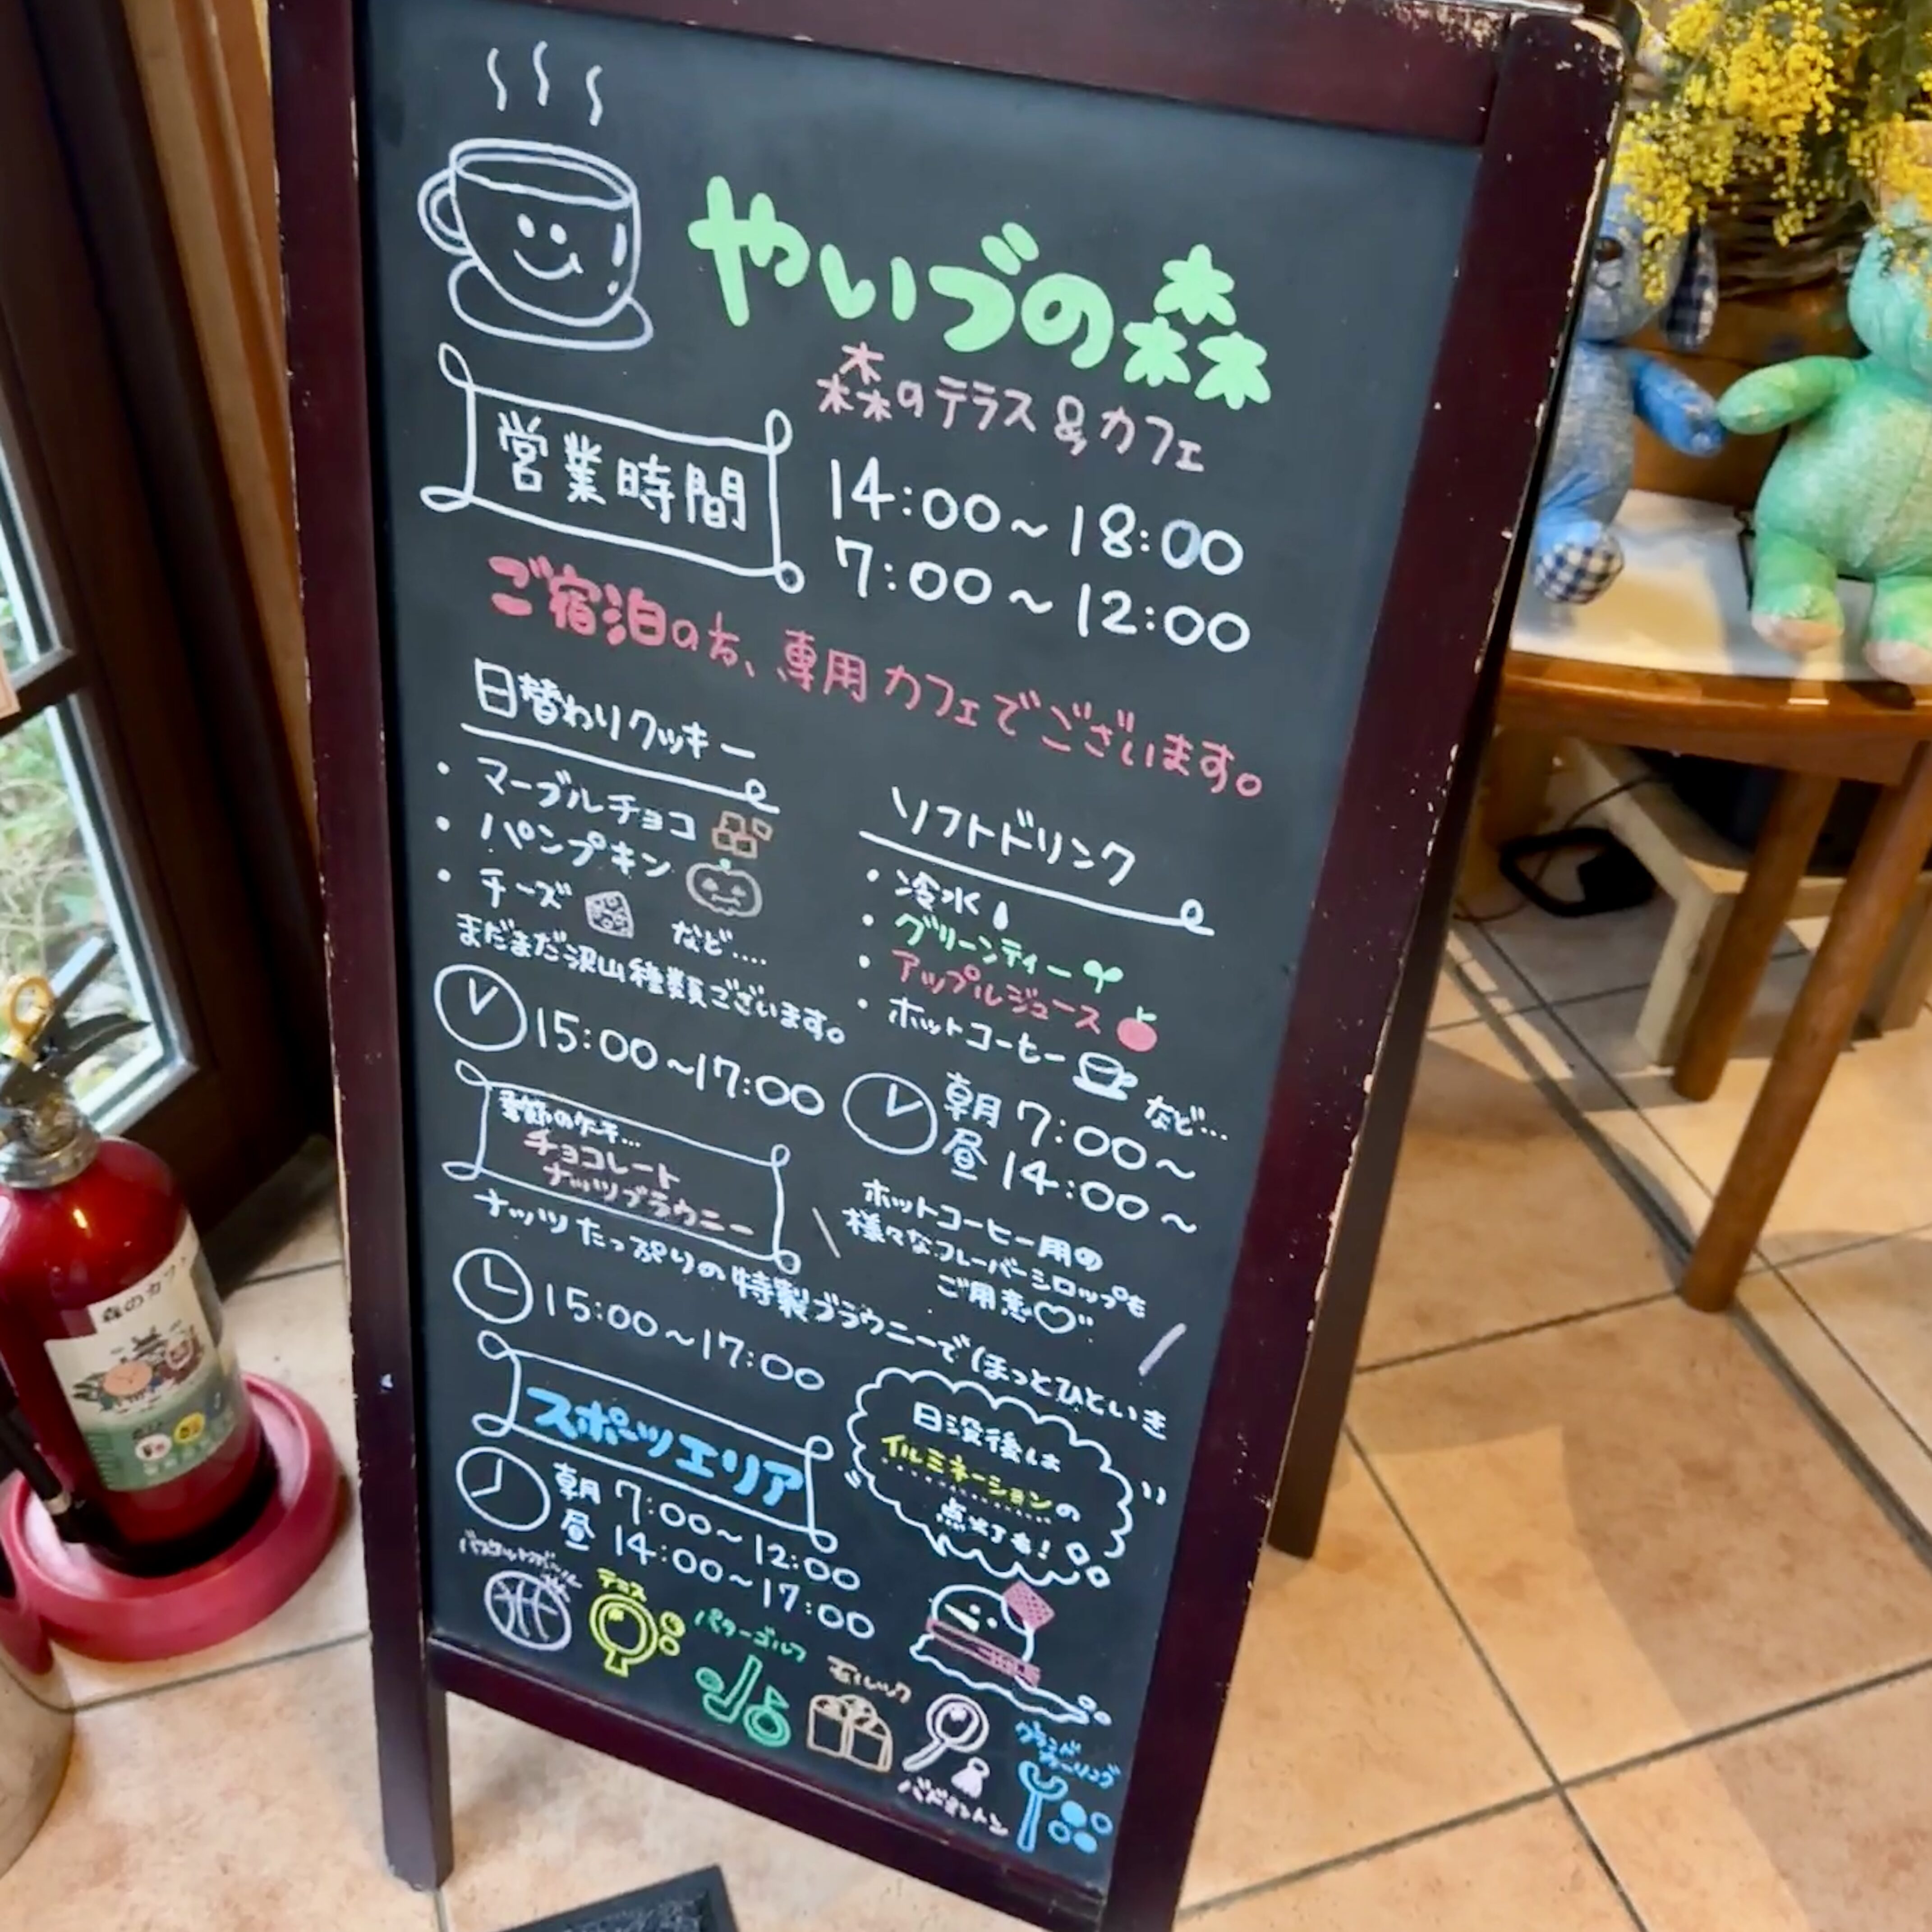 やいづの森
森のテラス&カフェ
営業時間
14:00~18:00
7:00~12:00
ご宿泊の方、専用カフェでございます。
日替わりクッキー
・マーブルチョコ
・パンプキン
・チーズ
など....
まだまだ沢山種類ございます。
15:00~17:00
ソフトドリンク
・冷水
・グリーンティー
・アップルジュース
・ホットコーヒー
など...
朝7:00~
昼14:00~
ホットコーヒー用の
様々なフレーバーシロップも
ご用意♡
季節のケーキ...
チョコレート
ナッツブラウニー
ナッツたっぷりの特製ブラウニーでほっとひといき
15:00~17:00
スポーツエリア
朝7:00~12:00
昼14:00~17:00
日没後は
イルミネーションの
点灯も!
バスケットボール
テニス
パターゴルフ
バドミントン
グランド
森のカフェ